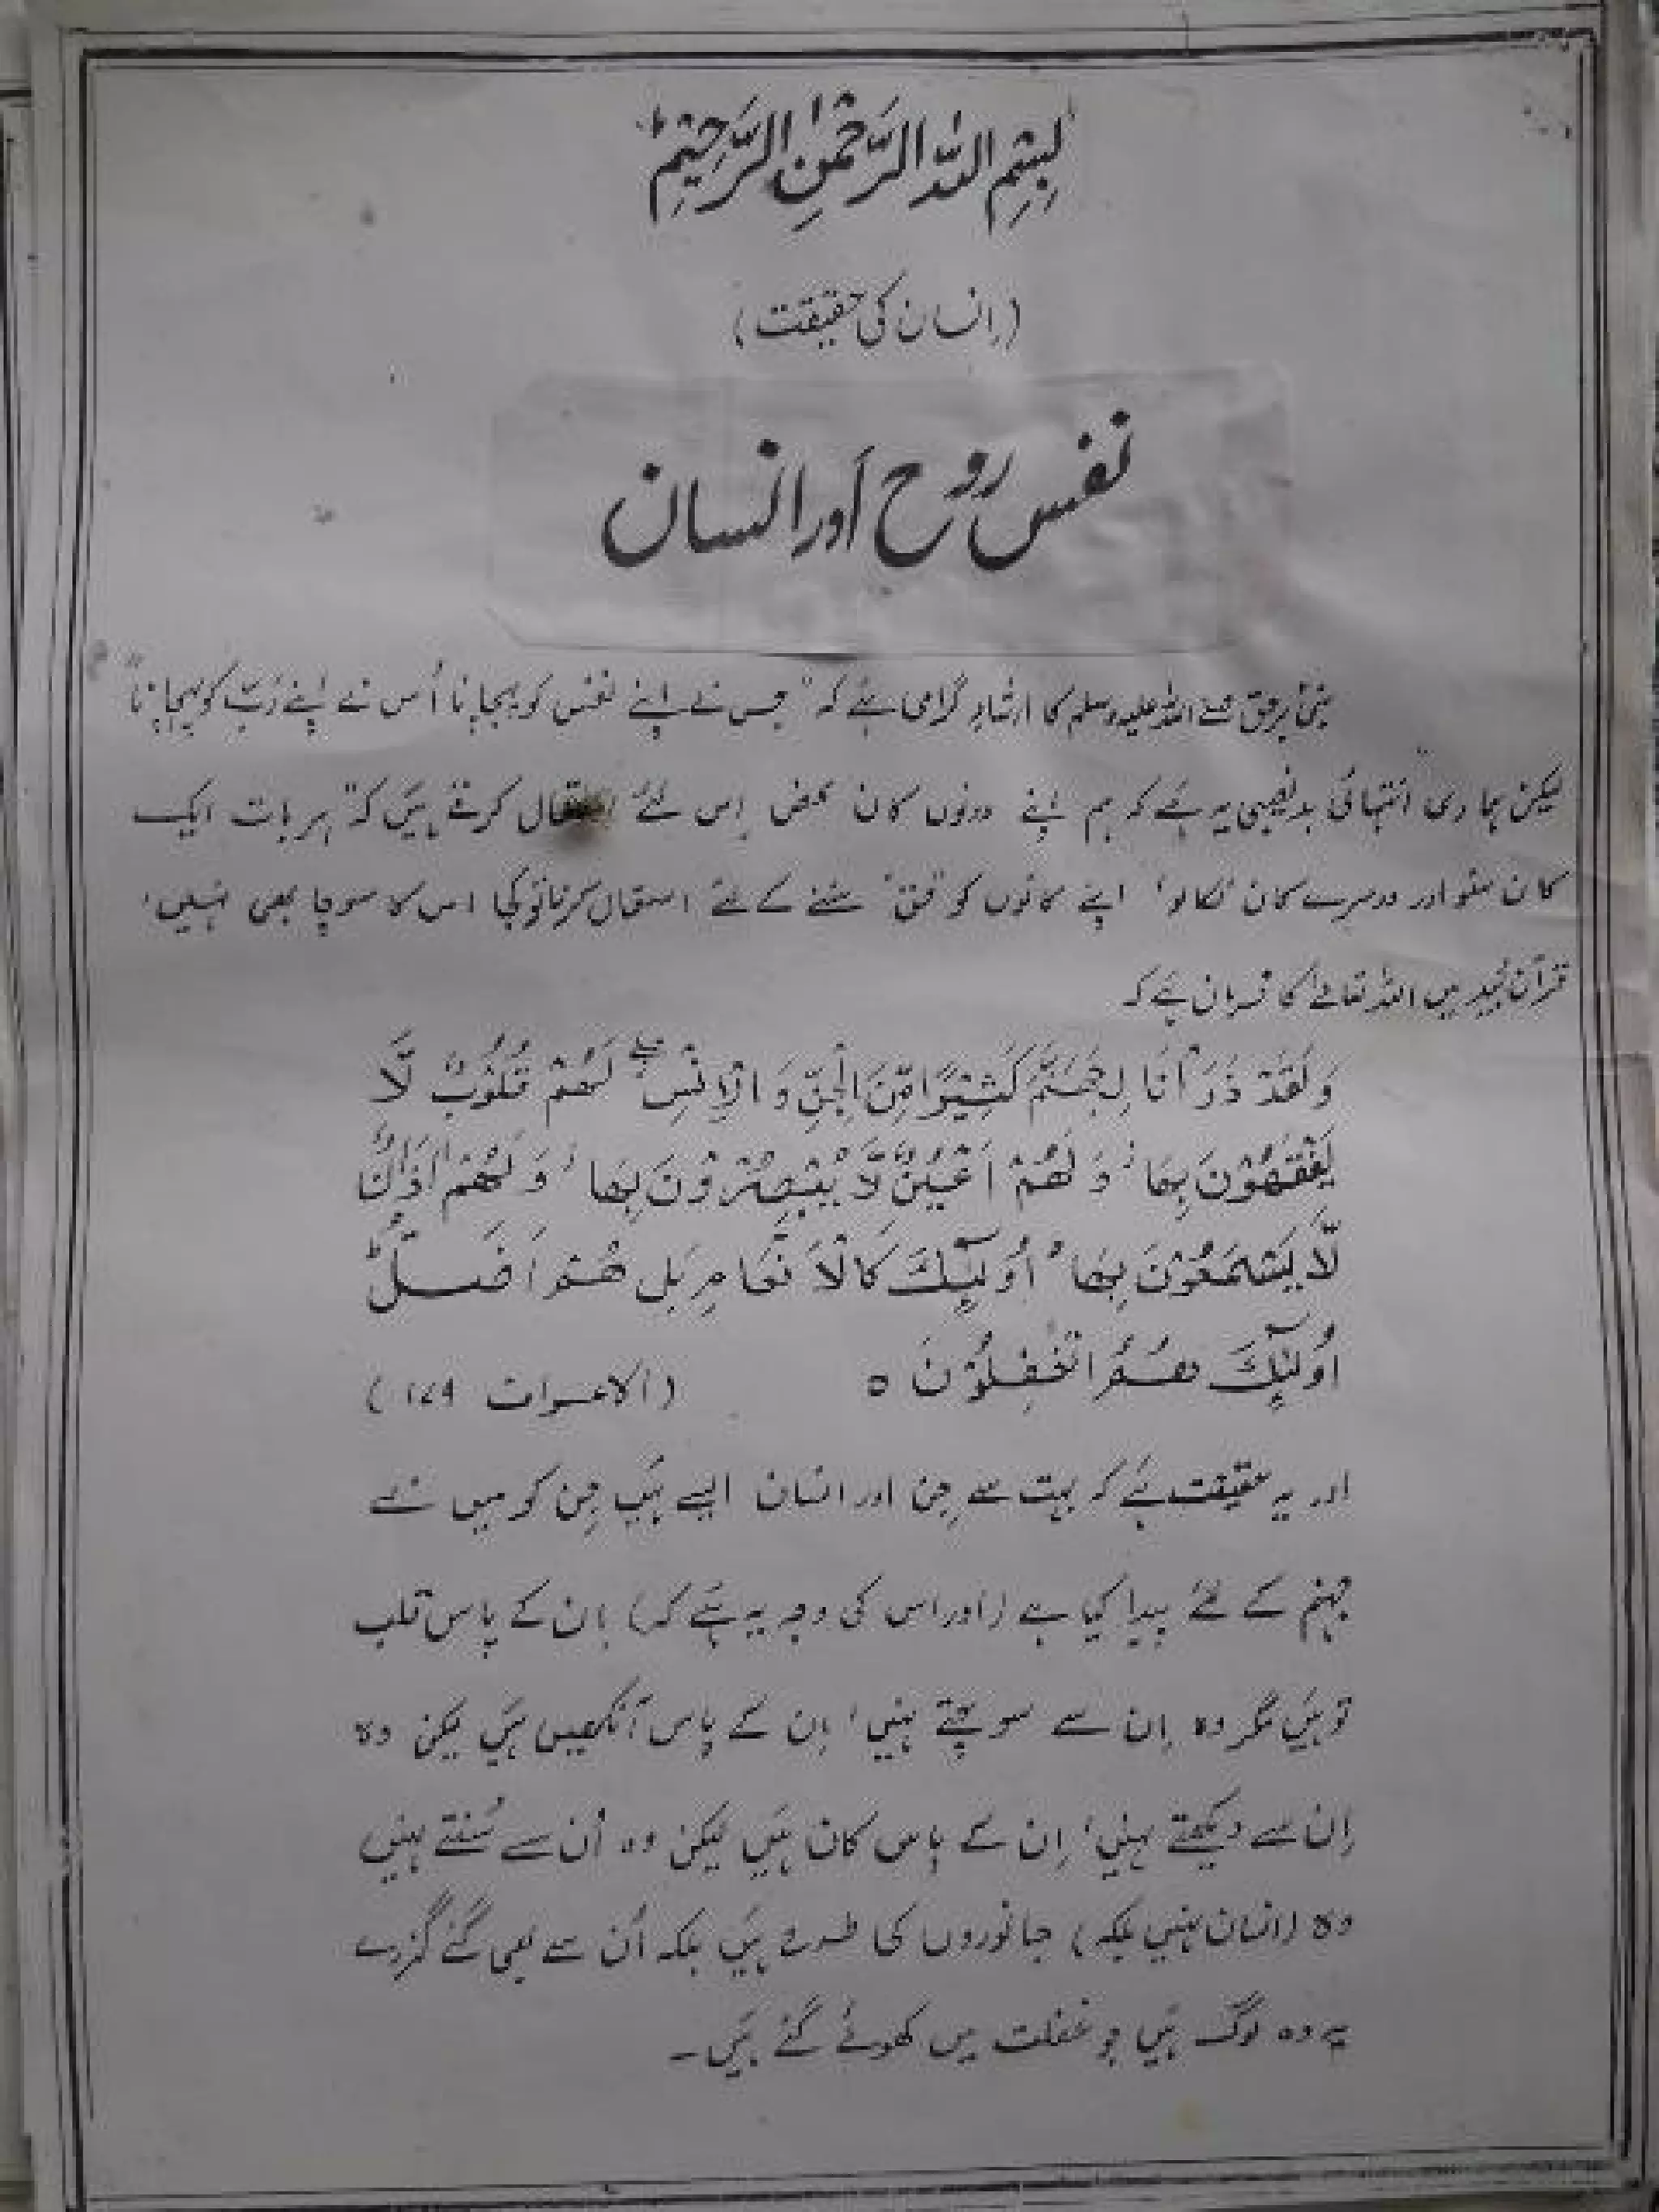 بِسْمِ اللّٰهِ الرَّحْمٰنِ الرَّحِيْمِ ط
(اِنسان کی حقیقت)
نفس روح اَور انسان
نبیٔ برحق صلے اللہ علیہ وسلم کا ارشادِ گرامی ہے کہ "جس نے اپنے نفس کو پہچانا اُس نے اپنے رَبّ کو پہچانا"
لیکن ہماری انتہائی بدنصیبی یہ ہے کہ ہم اپنے دونوں کان محض اِس لئے استعمال کرتے ہیں کہ "ہر بات ایک
کان سنو اور دوسرے کان نکالو" اپنے کانوں کو "حق" سننے کے لئے استعمال کرنا تو کجا اس کا سوچا بھی نہیں،
قرآن مجید میں اللہ تعالےٰ کا فرمان ہے کہ
وَلَقَدْ ذَرَاْنَا لِجَهَنَّمَ كَثِيْرًا مِّنَ الْجِنِّ وَ الْاِنْسِ ۖ لَهُمْ قُلُوْبٌ لَّا
يَفْقَهُوْنَ بِهَا ز وَ لَهُمْ اَعْيُنٌ لَّا يُبْصِرُوْنَ بِهَا ز وَ لَهُمْ اٰذَانٌ
لَّا يَسْمَعُوْنَ بِهَا ط اُولٰٓئِكَ كَالْاَنْعَامِ بَلْ هُمْ اَضَلُّ ط
اُولٰٓئِكَ هُمُ الْغٰفِلُوْنَ ه (الاعراف ۱۷۹)
اور یہ حقیقت ہے کہ بہت سے جِن اور انسان ایسے ہیں جِن کو میں نے
جہنم کے لئے پیدا کیا ہے (اور اس کی وجہ یہ ہے کہ) اِن کے پاس قلب
تو ہیں مگر وہ اِن سے سوچتے نہیں، اِن کے پاس آنکھیں ہیں لیکن وہ
اِن سے دیکھتے نہیں، اِن کے پاس کان ہیں لیکن وہ اُن سے سُنتے نہیں
وہ (انسان نہیں بلکہ) جانوروں کی طرح ہیں بلکہ اُن سے بھی گئے گزرے
یہ وہ لوگ ہیں جو غفلت میں کھوئے گئے ہیں۔